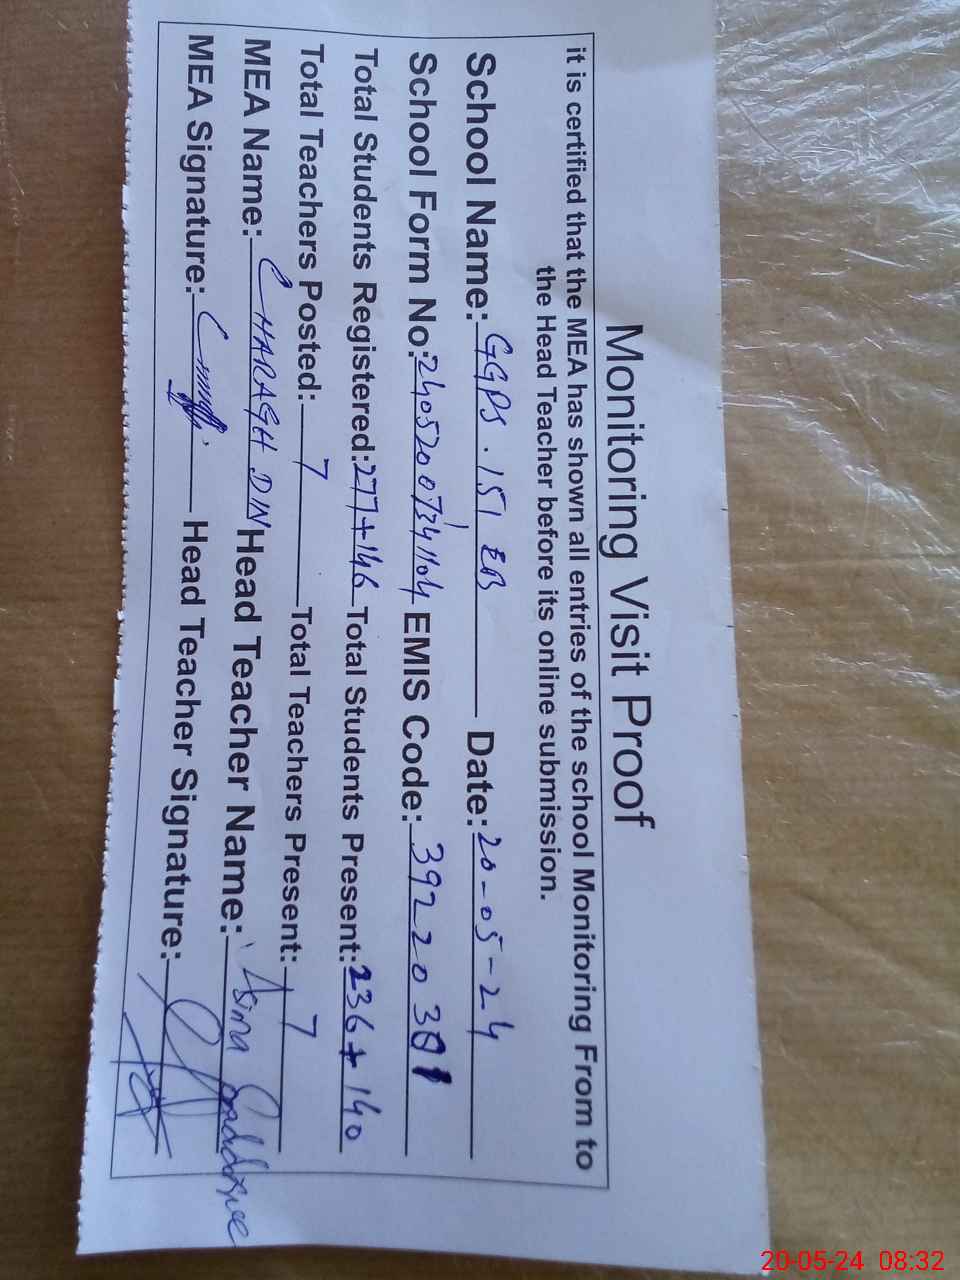 Monitoring Visit Proof
it is certified that the MEA has shown all entries of the school Monitoring From to
the Head Teacher before its online submission.
School Name: GGPS. 151 EB Date: 20-05-24
School Form No: 24052007341104 EMIS Code: 3922038
Total Students Registered: 277+146 Total Students Present: 236+140
Total Teachers Posted: 7 Total Teachers Present: 7
MEA Name: CHARAGH DIN Head Teacher Name: Asima
MEA Signature: Head Teacher Signature:
20-05-24 08:32